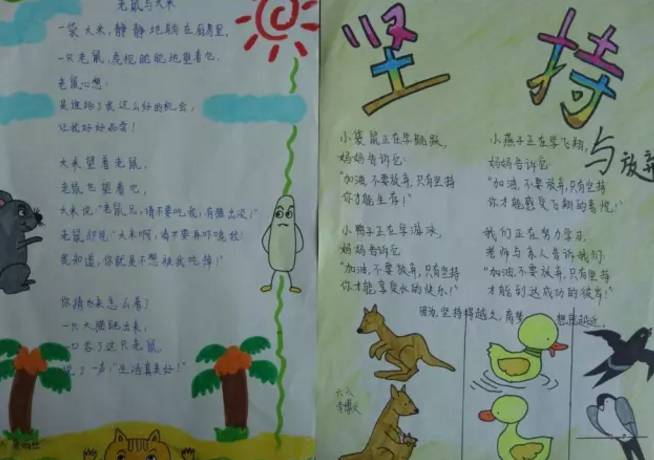 老鼠与大米
一袋大米,静静地躺在厨房里,
一只老鼠,虎视眈眈地望着它.
老鼠心想:
是谁给了我这么好的机会,
让我好好品尝!
大米望着老鼠,
老鼠也望着它,
大米说:"老鼠兄,请不要吃我,有猫出没!"
老鼠却说:"大米啊,请不要再吓唬我!
我知道,你就是不想被我吃掉!"
你猜后来怎么着?
一只大猫跑出来,
一口吞了这只老鼠
说了一声:"生活真美好!"
坚持
与放弃
小袋鼠正在学跳跃,
妈妈告诉它:
"加油,不要放弃,只有坚持
你才能生存!"
小燕子正在学飞翔,
妈妈告诉它:
"加油,不要放弃,只有坚持
你才能感受飞翔的喜悦!"
小鸭子正在学游泳,
妈妈告诉它
"加油,不要放弃,只有坚持
你才能享受水的快乐!"
我们正在努力学习,
老师与家人告诉我们:
"加油,不要放弃,只有坚持
才能到达成功的彼岸!"
因为,坚持得越久,离梦想就越近.
六六